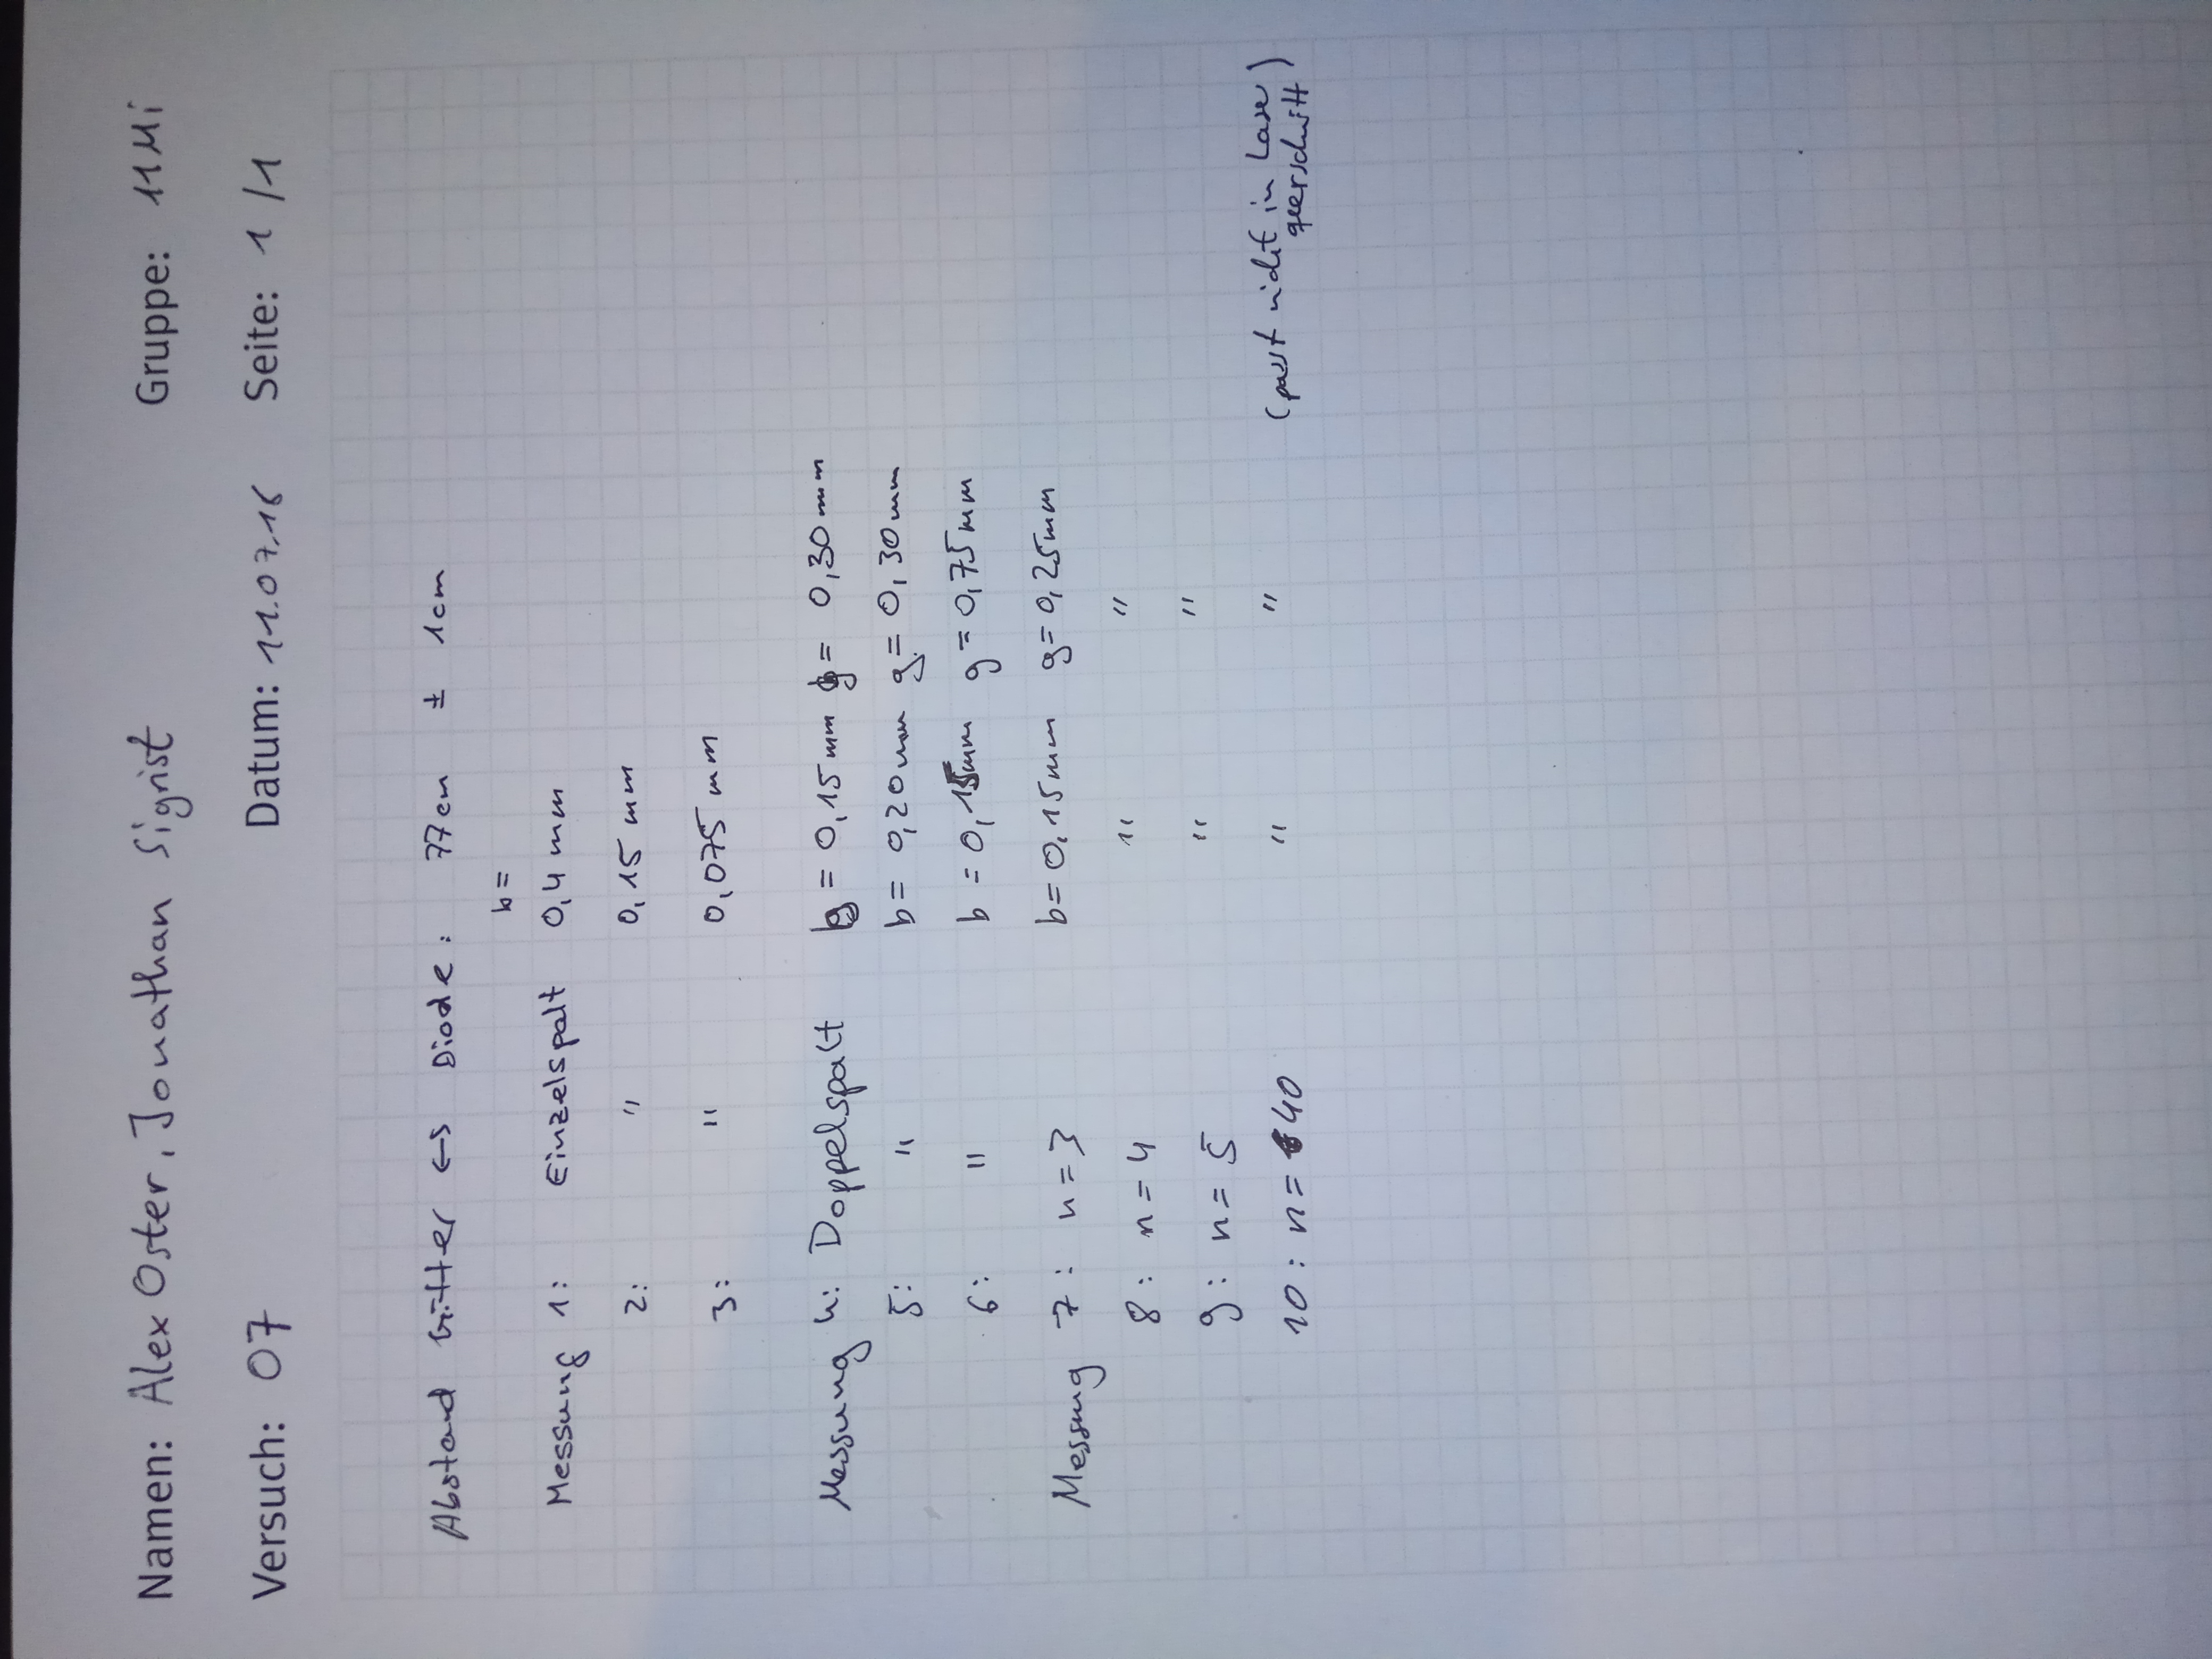 Namen: Alex Oster, Jonathan Sigrist Gruppe: 11Mi
Versuch: 07 Datum: 11.07.16 Seite: 1 /1
Abstand Gitter ↔ Diode: 77cm ± 1cm
b =
Messung 1: Einzelspalt 0,4 mm
2: " 0,15 mm
3: " 0,075 mm
Messung 4: Doppelspalt b = 0,15 mm g = 0,30 mm
5: " b = 0,20 mm g = 0,30 mm
6: " b = 0,15mm g = 0,75 mm
Messung 7: n = 3 b = 0,15mm g = 0,25mm
8: n = 4 " "
9: n = 5 " "
10: n = 40 " " (passt nicht in Laser
querschnitt)